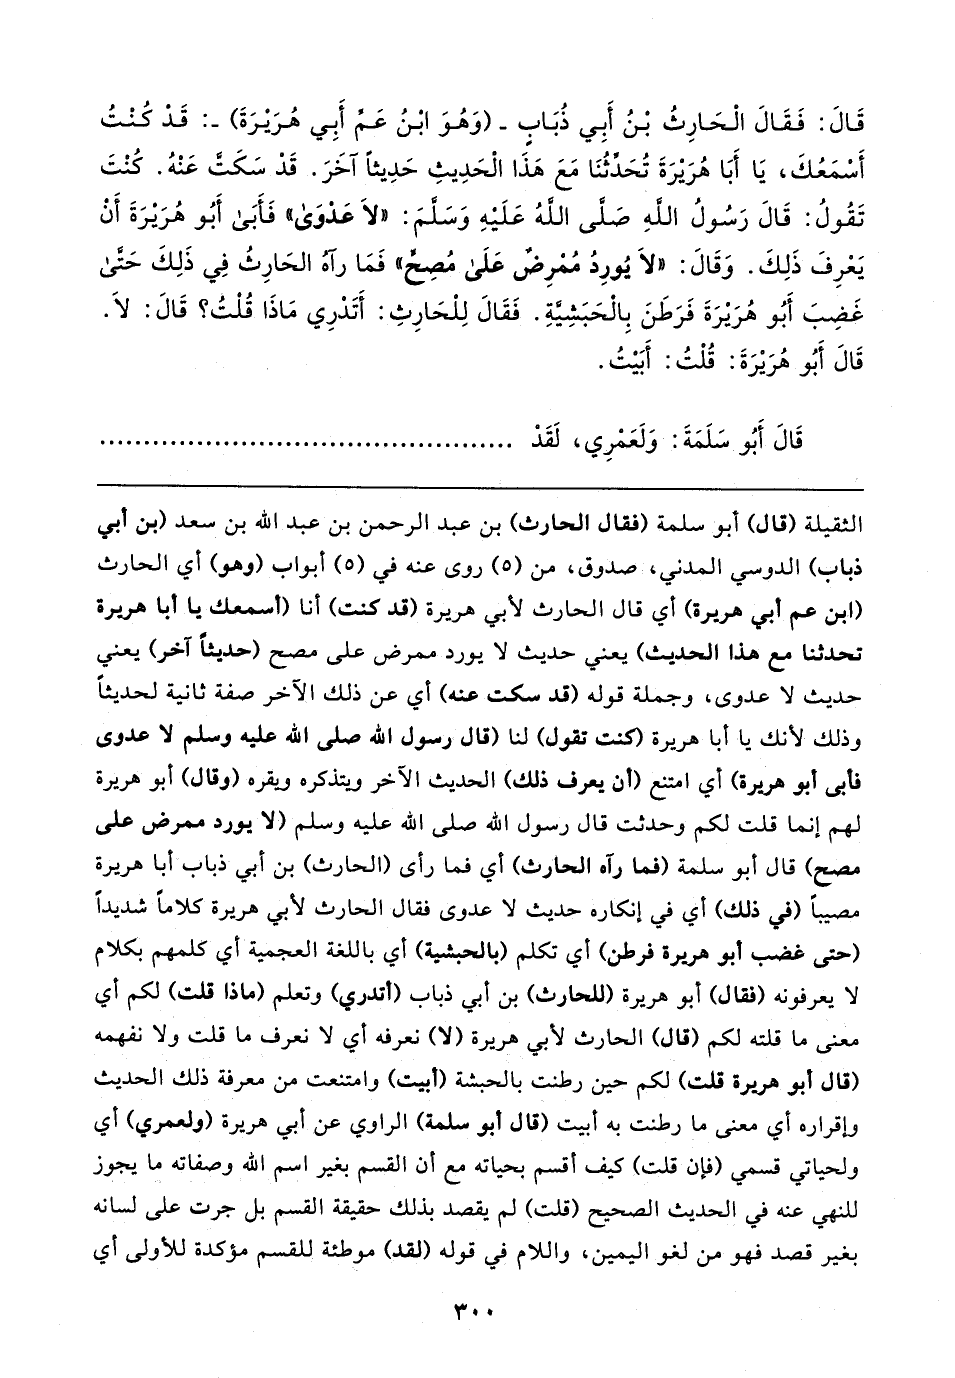 قَالَ: فَقَالَ الْحَارِثُ بْنُ أَبِي ذُبَابٍ ـ (وَهُوَ ابْنُ عَمِّ أَبِي هُرَيْرَةَ) ـ: قَدْ كُنْتُ
أَسْمَعُكَ، يَا أَبَا هُرَيْرَةَ تُحَدِّثُنَا مَعَ هَذَا الْحَدِيثِ حَدِيثاً آخَرَ. قَدْ سَكَتَّ عَنْهُ. كُنْتَ
تَقُولُ: قَالَ رَسُولُ اللَّهِ صَلَّى اللَّهُ عَلَيْهِ وَسَلَّمَ: «لاَ عَدْوَىٰ» فَأَبَىٰ أَبُو هُرَيْرَةَ أَنْ
يَعْرِفَ ذَلِكَ. وَقَالَ: «لاَ يُورِدُ مُمْرِضٌ عَلَىٰ مُصِحٍّ» فَمَا رَآهُ الْحَارِثُ فِي ذَلِكَ حَتَّىٰ
غَضِبَ أَبُو هُرَيْرَةَ فَرَطَنَ بِالْحَبَشِيَّةِ. فَقَالَ لِلْحَارِثِ: أَتَدْرِي مَاذَا قُلْتُ؟ قَالَ: لاَ.
قَالَ أَبُو هُرَيْرَةَ: قُلْتُ: أَبَيْتُ.
قَالَ أَبُو سَلَمَةَ: وَلَعَمْرِي، لَقَدْ ...............................................
الثقيلة (قال) أبو سلمة (فقال الحارث) بن عبد الرحمن بن عبد الله بن سعد (بن أبي
ذباب) الدوسي المدني، صدوق، من (٥) روى عنه في (٥) أبواب (وهو) أي الحارث
(ابن عم أبي هريرة) أي قال الحارث لأبي هريرة (قد كنت) أنا (أسمعك يا أبا هريرة
تحدثنا مع هذا الحديث) يعني حديث لا يورد ممرض على مصح (حديثاً آخر) يعني
حديث لا عدوى، وجملة قوله (قد سكت عنه) أي عن ذلك الآخر صفة ثانية لحديثاً
وذلك لأنك يا أبا هريرة (كنت تقول) لنا (قال رسول الله صلى الله عليه وسلم لا عدوى
فأبى أبو هريرة) أي امتنع (أن يعرف ذلك) الحديث الآخر ويتذكره ويقره (وقال) أبو هريرة
لهم إنما قلت لكم وحدثت قال رسول الله صلى الله عليه وسلم (لا يورد ممرض على
مصح) قال أبو سلمة (فما رآه الحارث) أي فما رأى (الحارث) بن أبي ذباب أبا هريرة
مصيباً (في ذلك) أي في إنكاره حديث لا عدوى فقال الحارث لأبي هريرة كلاماً شديداً
(حتى غضب أبو هريرة فرطن) أي تكلم (بالحبشية) أي باللغة العجمية أي كلمهم بكلام
لا يعرفونه (فقال) أبو هريرة (للحارث) بن أبي ذباب (أتدري) وتعلم (ماذا قلت) لكم أي
معنى ما قلته لكم (قال) الحارث لأبي هريرة (لا) نعرفه أي لا نعرف ما قلت ولا نفهمه
(قال أبو هريرة قلت) لكم حين رطنت بالحبشة (أبيت) وامتنعت من معرفة ذلك الحديث
وإقراره أي معنى ما رطنت به أبيت (قال أبو سلمة) الراوي عن أبي هريرة (ولعمري) أي
ولحياتي قسمي (فإن قلت) كيف أقسم بحياته مع أن القسم بغير اسم الله وصفاته ما يجوز
للنهي عنه في الحديث الصحيح (قلت) لم يقصد بذلك حقيقة القسم بل جرت على لسانه
بغير قصد فهو من لغو اليمين، واللام في قوله (لقد) موطئة للقسم مؤكدة للأولى أي
٣٠٠